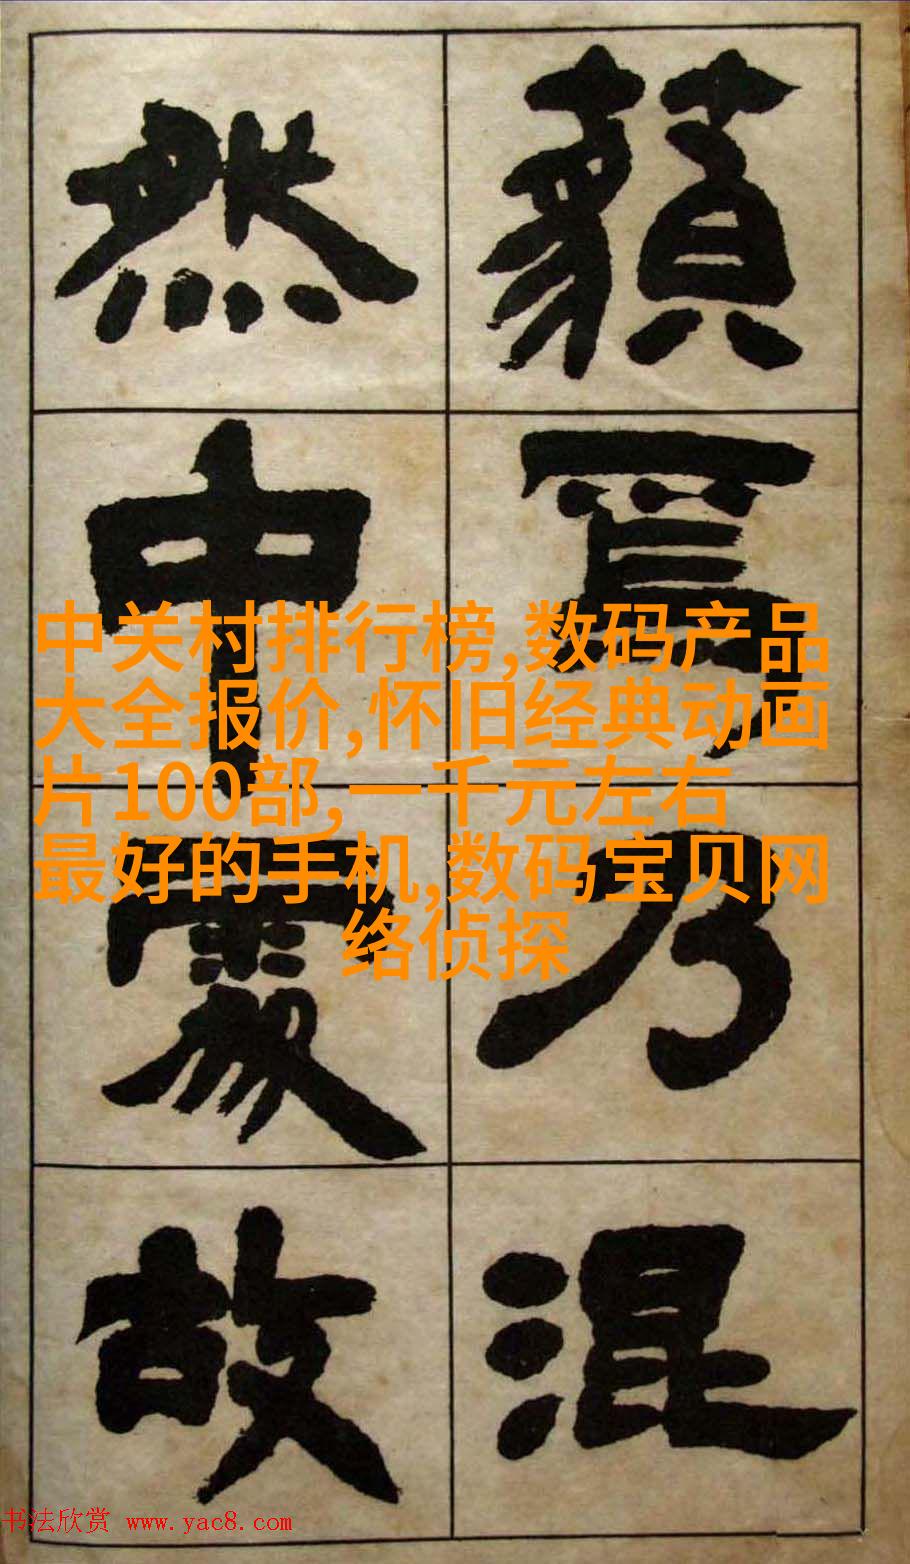 藐焉乃混
然中處故
中关村排行榜,数码产品
大全报价,怀旧经典动画
片100部,一千元左右
最好的手机,数码宝贝网
络侦探
书法欣赏 www.yac8.com